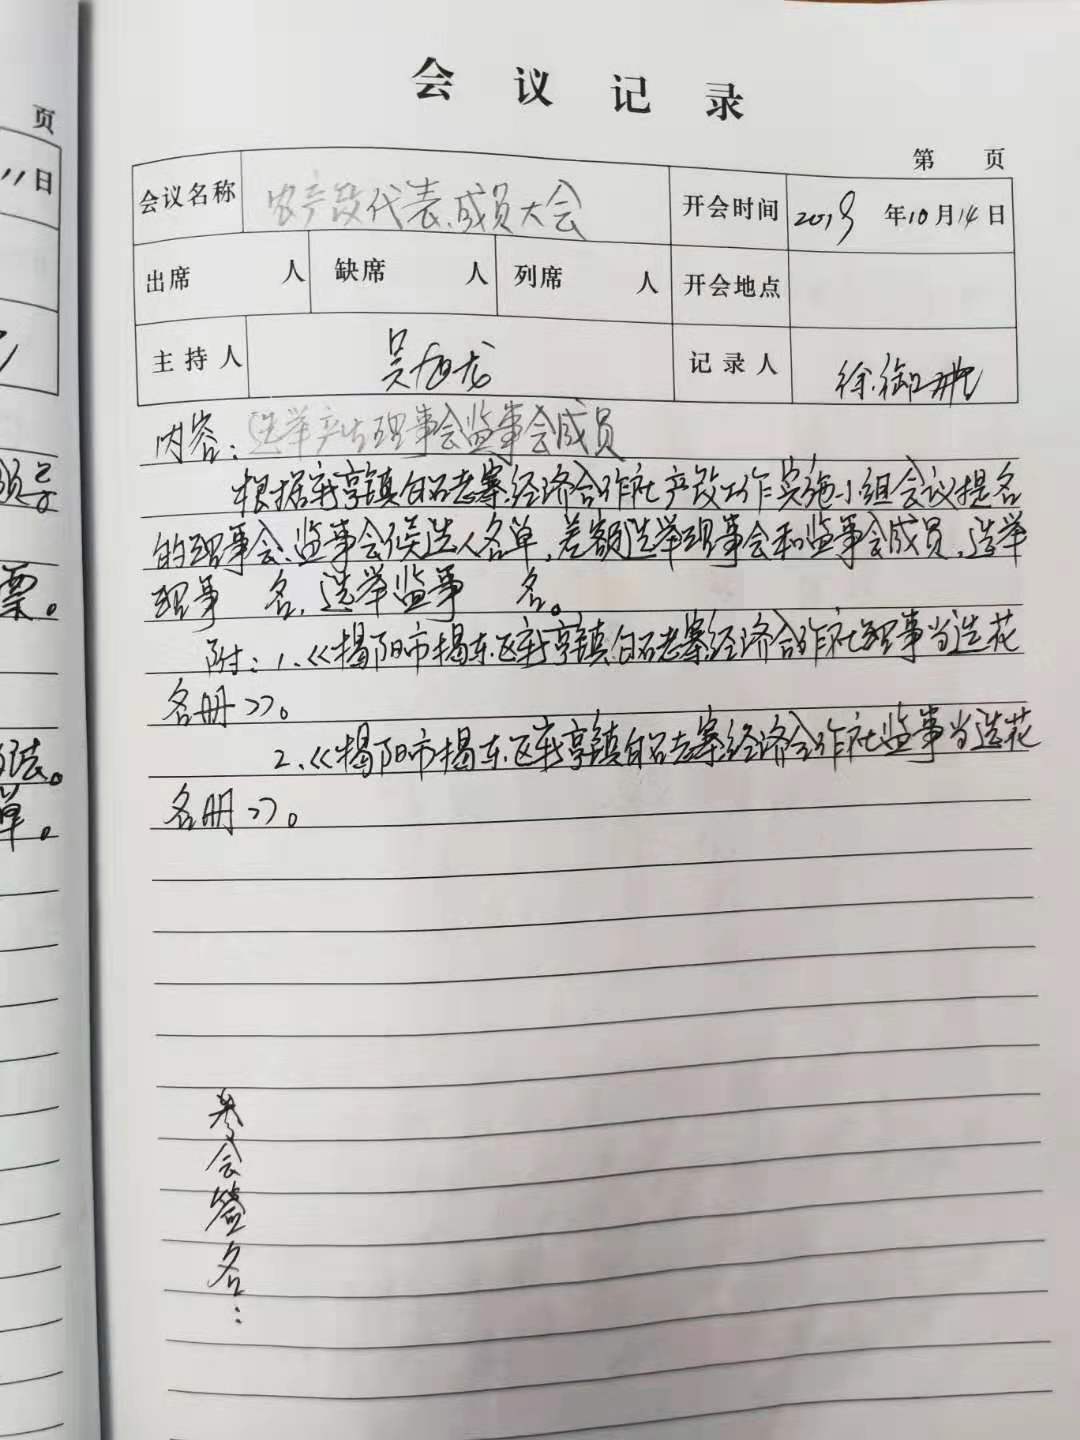 页
11日
会议记录
第 页
会议名称 农产改代表、成员大会 开会时间 2019年10月14日
出席 人 缺席 人 列席 人 开会地点
主持人 吴旭龙 记录人 徐
内容：选举产生理事会监事会成员
根据新亨镇白石老寨经济合作社产改工作实施小组会议提名
的理事会、监事会候选人名单，差额选举理事会和监事会成员，选举
理事 名，选举监事 名。
附：1、《揭阳市揭东区新亨镇白石老寨经济合作社理事当选花
名册》。
2、《揭阳市揭东区新亨镇白石老寨经济合作社监事当选花
名册》。
参会签名：
票。
法。
单。